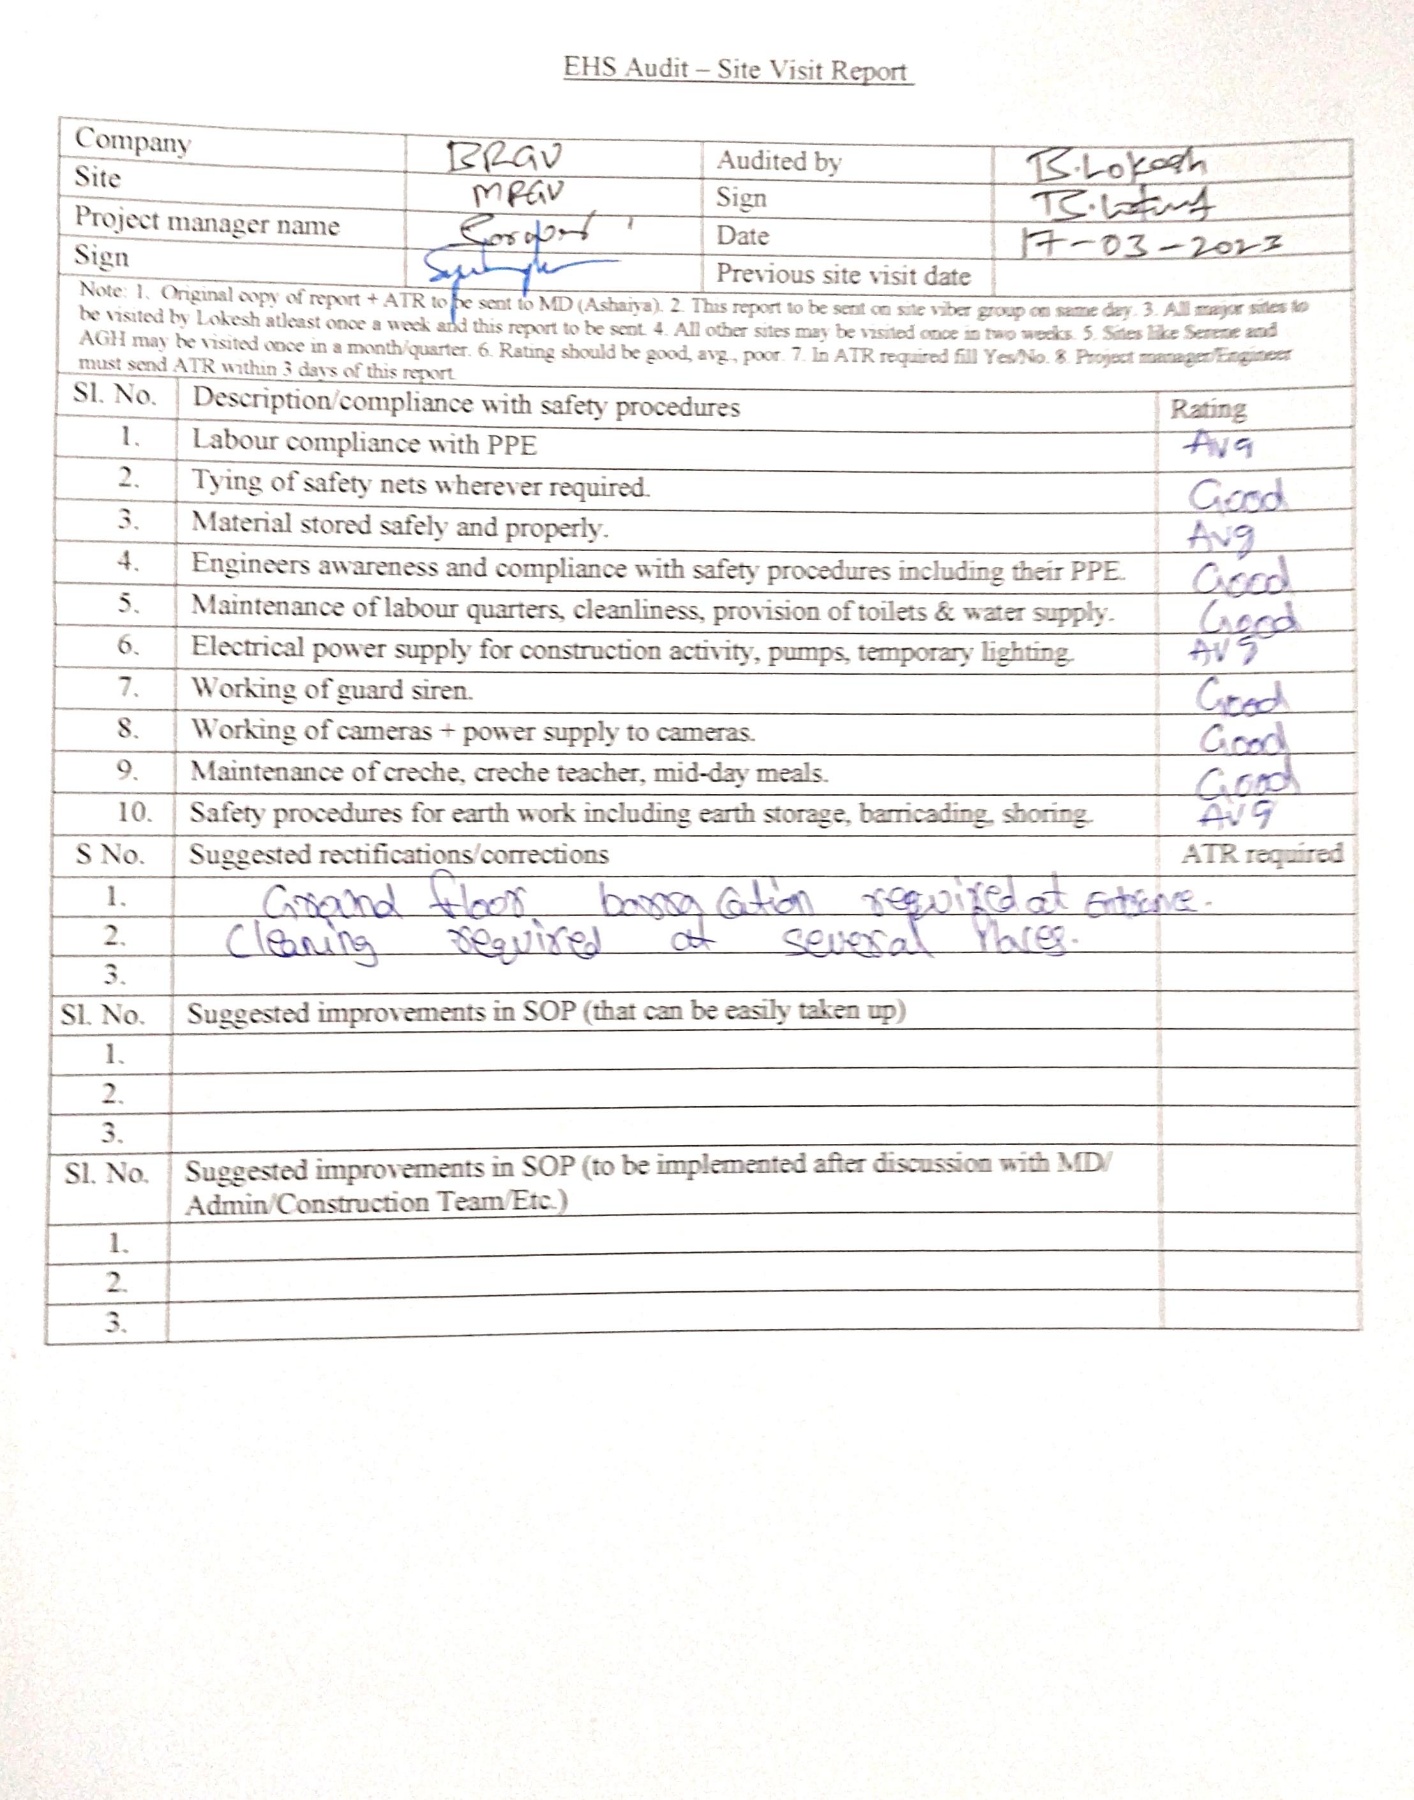 EHS Audit – Site Visit Report
Company BRGV Audited by B.Lokesh
Site MRGV Sign
Project manager name Date 17-03-2023
Sign Previous site visit date
Note: 1. Original copy of report + ATR to be sent to MD (Ashaiya). 2. This report to be sent on site viber group on same day. 3. All major sites to
be visited by Lokesh atleast once a week and this report to be sent. 4. All other sites may be visited once in two weeks. 5. Sites like Serene and
AGH may be visited once in a month/quarter. 6. Rating should be good, avg., poor. 7. In ATR required fill Yes/No. 8. Project manager/Engineer
must send ATR within 3 days of this report
Sl. No. Description/compliance with safety procedures Rating
1. Labour compliance with PPE Avg
2. Tying of safety nets wherever required. Good
3. Material stored safely and properly. Avg
4. Engineers awareness and compliance with safety procedures including their PPE. Good
5. Maintenance of labour quarters, cleanliness, provision of toilets & water supply. Good
6. Electrical power supply for construction activity, pumps, temporary lighting. Avg
7. Working of guard siren. Good
8. Working of cameras + power supply to cameras. Good
9. Maintenance of creche, creche teacher, mid-day meals. Good
10. Safety procedures for earth work including earth storage, barricading, shoring. Avg
S No. Suggested rectifications/corrections ATR required
1. Ground floor required at Entrance.
2. Cleaning required at several Places.
3.
Sl. No. Suggested improvements in SOP (that can be easily taken up)
1.
2.
3.
Sl. No. Suggested improvements in SOP (to be implemented after discussion with MD/
Admin/Construction Team/Etc.)
1.
2.
3.